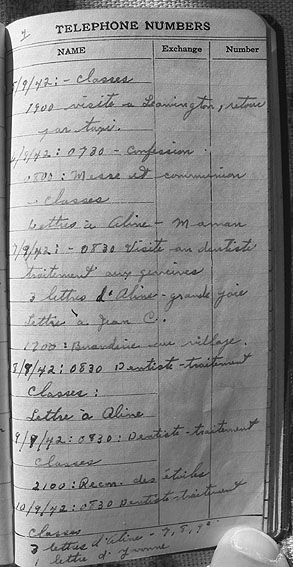 TELEPHONE NUMBERS
NAME Exchange Number
5/9/42: - Classes
1900 visite a Leamington, retour
par taxi.
6/9/42: 0730 - Confession
0800: Messe et communion
- Classes
Lettres à Aline - Maman
7/9/42: - 0830 Visite au dentiste
traitement aux gencives
3 lettres d'Aline - grande joie
Lettre à Jean C.
1700: au village.
8/9/42: 0830 Dentiste - traitement
Classes:
Lettre à Aline
9/9/42: 0830: Dentiste - traitement
Classes
2100: Recon. des étoiles
10/9/42: 0830 Dentiste - traitement
Classes
3 lettres d'Aline - 7, 8, 9
1 lettre d'Yvonne